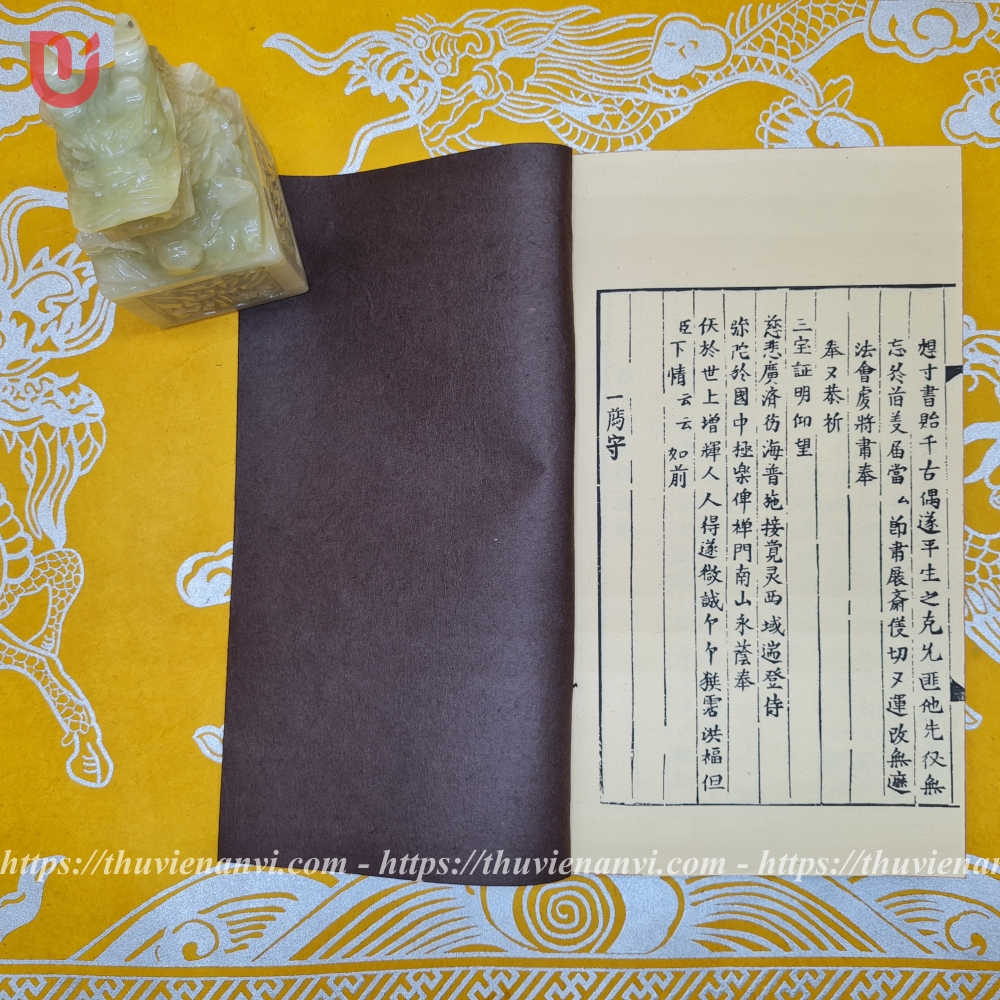 想寸書貽千古偶遂平生之克允匪他先伇無
忘於首羙届當ㄙ節肅展斎俴切又運改無遮
法會虔將書奉
奉又恭祈
三宝証明仰望
慈悲廣濟彷海普施接覓灵西域遄登侍
弥陀於國中極楽俾禅門南山永蔭奉
仸於世上增輝人人得遂微誠卞卞獎霑洪福但
臣下情云云如前
一薦守
https://thuvienanvi.com - https://thuvienanvi.com - https://thuvienan